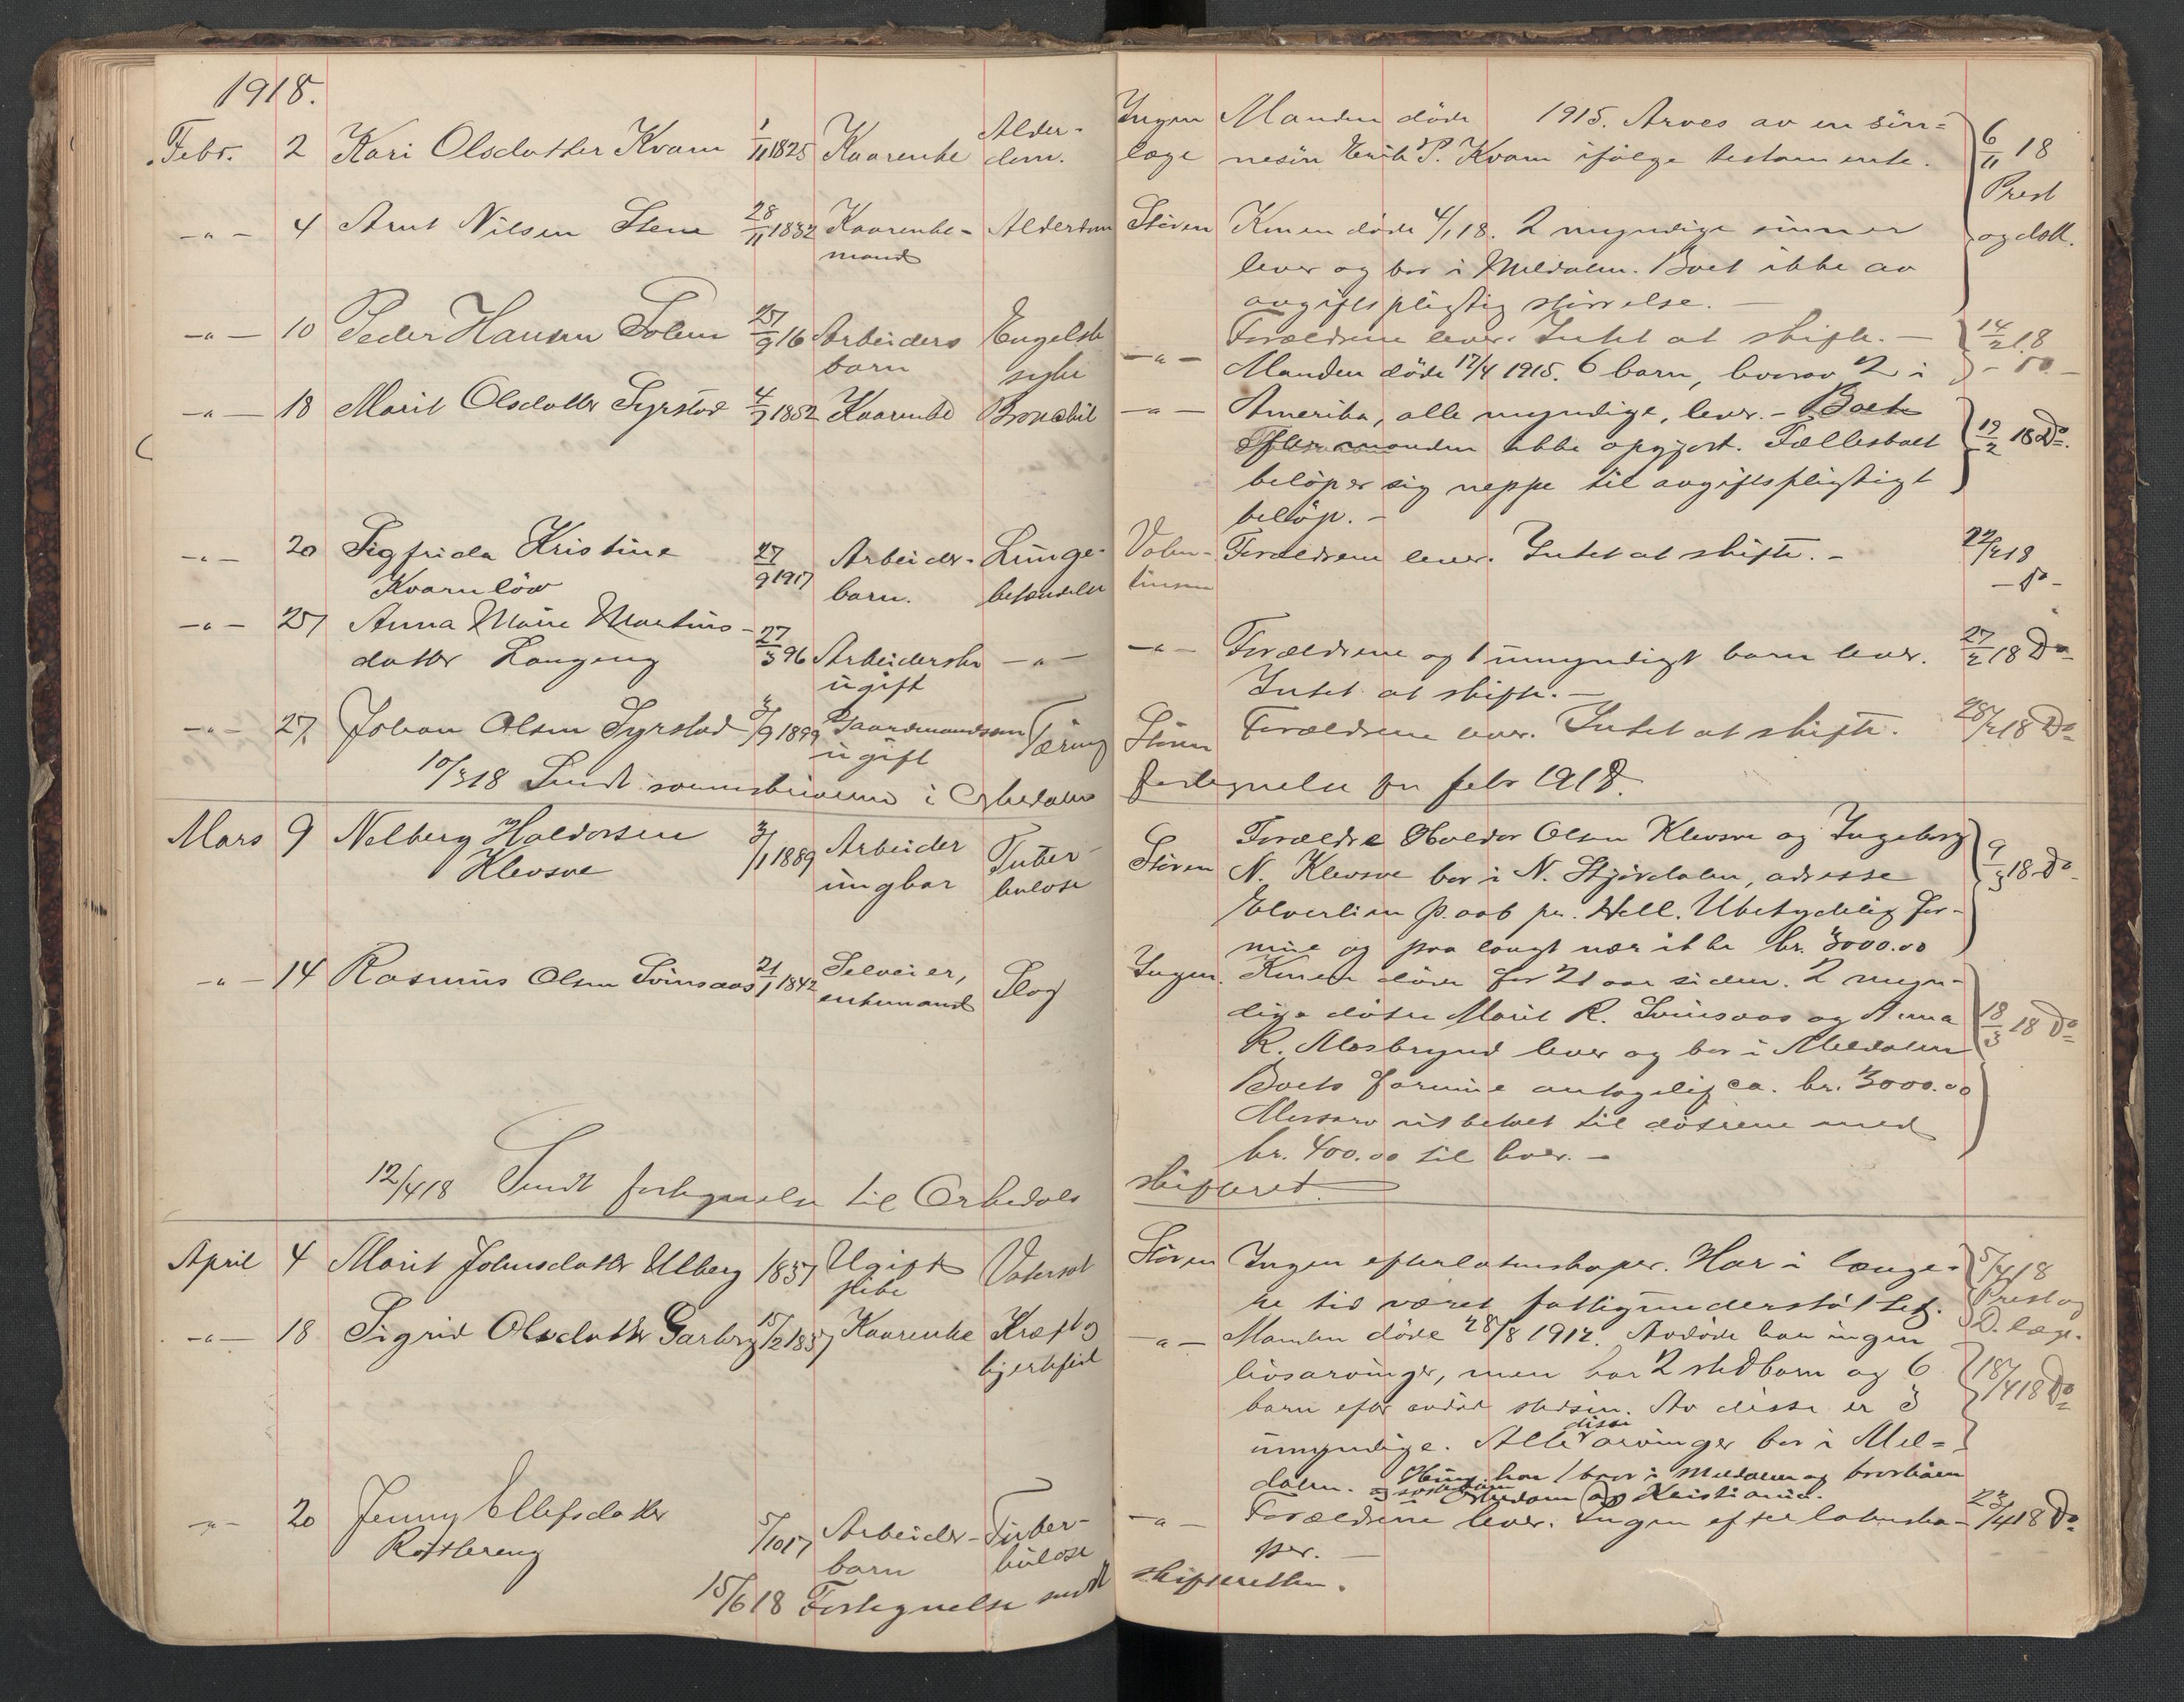 1918.
Febr. 2 Kari Olsdatter Kvam 1/11 1825 Kaarenke Alder-
dom.
Ingen Manden döde 1915. Arves av en sön-
læge nesön Erik P. Kvam ifölge testamente. 6/11 18
Prest
og dokt.
-„- 4 Arnt Nilsen Stene 28/11 1832 Kaarenke- Alderdom Stören Konen döde 4/1 18. 2 myndige sönner
mand lever og bor i Meldalen. Boet ikke av
avgiftspligtig störrelse. -
-„- 10 Peder Hansen Solem 9 16 Arbeiders Engelsk -„- Forældrene lever. Intet at skifte. - 14/2 18
barn syke - Do -
-„- 18 Marit Olsdatter Syrstad 4/7 1852 Kaarenke Bronckit -„- Manden döde 17/4 1915. 6 barn, hvorav 2 i
Amerika, alle myndige, lever. - Boet
Efter manden ikke opgjort. Fællesboet 19/2 18 Do.
belöper sig neppe til avgiftspligtigt
belöp. -
-„- 20 Sigfrida Kristine 27/9 1917 Arbeider- Lunge- Valen- Forældrene lever. Intet at skifte. - 22/2 18
Kvamlöv barn. betændelse tinsen - Do -
-„- 27 Anna Marie Martins-
datter Langeng 27/3 96 Arbeiderske -„- -„- Forældrene og 1 umyndigt barn lever. 27/2 18 Do
ugift Intet at skifte. -
-„- 27 Johan Olsen Syrstad /9 1899 Gaardmandssön Tæring Stören Forældrene lever. Intet at skifte. 28/2 18 Do
ugift
10/3 18 Sendt sorenskriveren i Orkedalen fortegnelse for febr 1918.
Mars 9 Nelberg Haldorsen 3/1 1889 Arbeider Tuber- Stören Forældre Haldor Olsen Klevsve og Ingeborg
Klevsve ungkar kulose N. Klevsve bor i N. Stjördalen, adresse 9/3 18 Do
Elverlien p. aab pr. Hell. Ubetydelig for-
mue og paa langt nær ikke kr. 3000.00
-„- 14 Rasmus Olsen Svinsaas 21/1 1842 Selveier, Slag Ingen. Konen döde for 21 aar siden. 2 myn-
enkemand dige döttre Marit R. Svinsaas og Anna 18/3 18 Do
R. Mosbrynd lever og bor i Meldalen
Boets formue antagelig ca. kr. 3000.00
Desuten utbetalt til döttrene med
kr. 400.00 til hver. -
12/4 18 Sendt fortegnelse til Orkedals skifteret.
April 4 Marit Johnsdatter Ulberg 1857 Ugift Vatersot Stören Ingen efterlatenskaper. Har i længe- 5/4 18
pike re tid været fattigunderstöttet. Prest og
D. læge.
-„- 18 Sigrid Olsdatter Garberg 15/2 1837 Kaarenke Kræft og -„- Manden döde 28/8 1912. Avdöde har ingen
hjertefeil livsarvinger, men har 2 stedbarn og 6 18/4 18 Do
barn efter avdöd stedsön. Av disse er 3
umyndige. Alle disse arvinger bor i Mel-
dalen. Hun har 1 bror i Meldalen og brorbarn
og i Orkedalen og Kristiania.
-„- 20 Jenny Ellefsdatter 5/10 17 Arbeider- Tuber- -„- Forældrene lever. Ingen efterlatenska- 23/4 18 Do
barn kulose per. -
15/6 18 Fortegnelse sendt skifteretten.